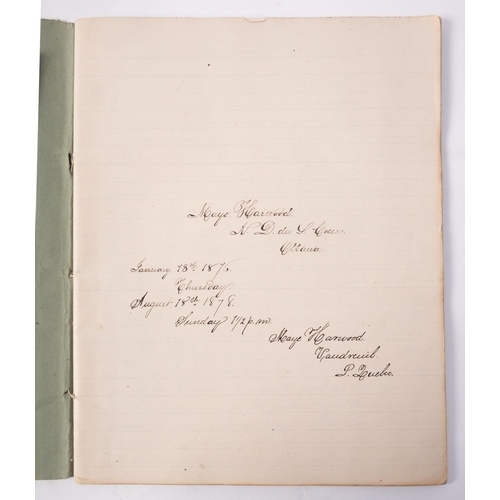 Mayo Harwood
N. D. du S. Coeur.
Ottawa.
January 18th 1876.
Thursday.
August 18th 1878.
Sunday 1/2 p.m.
Mayo Harwood.
Vaudreuil.
P. Quebec.